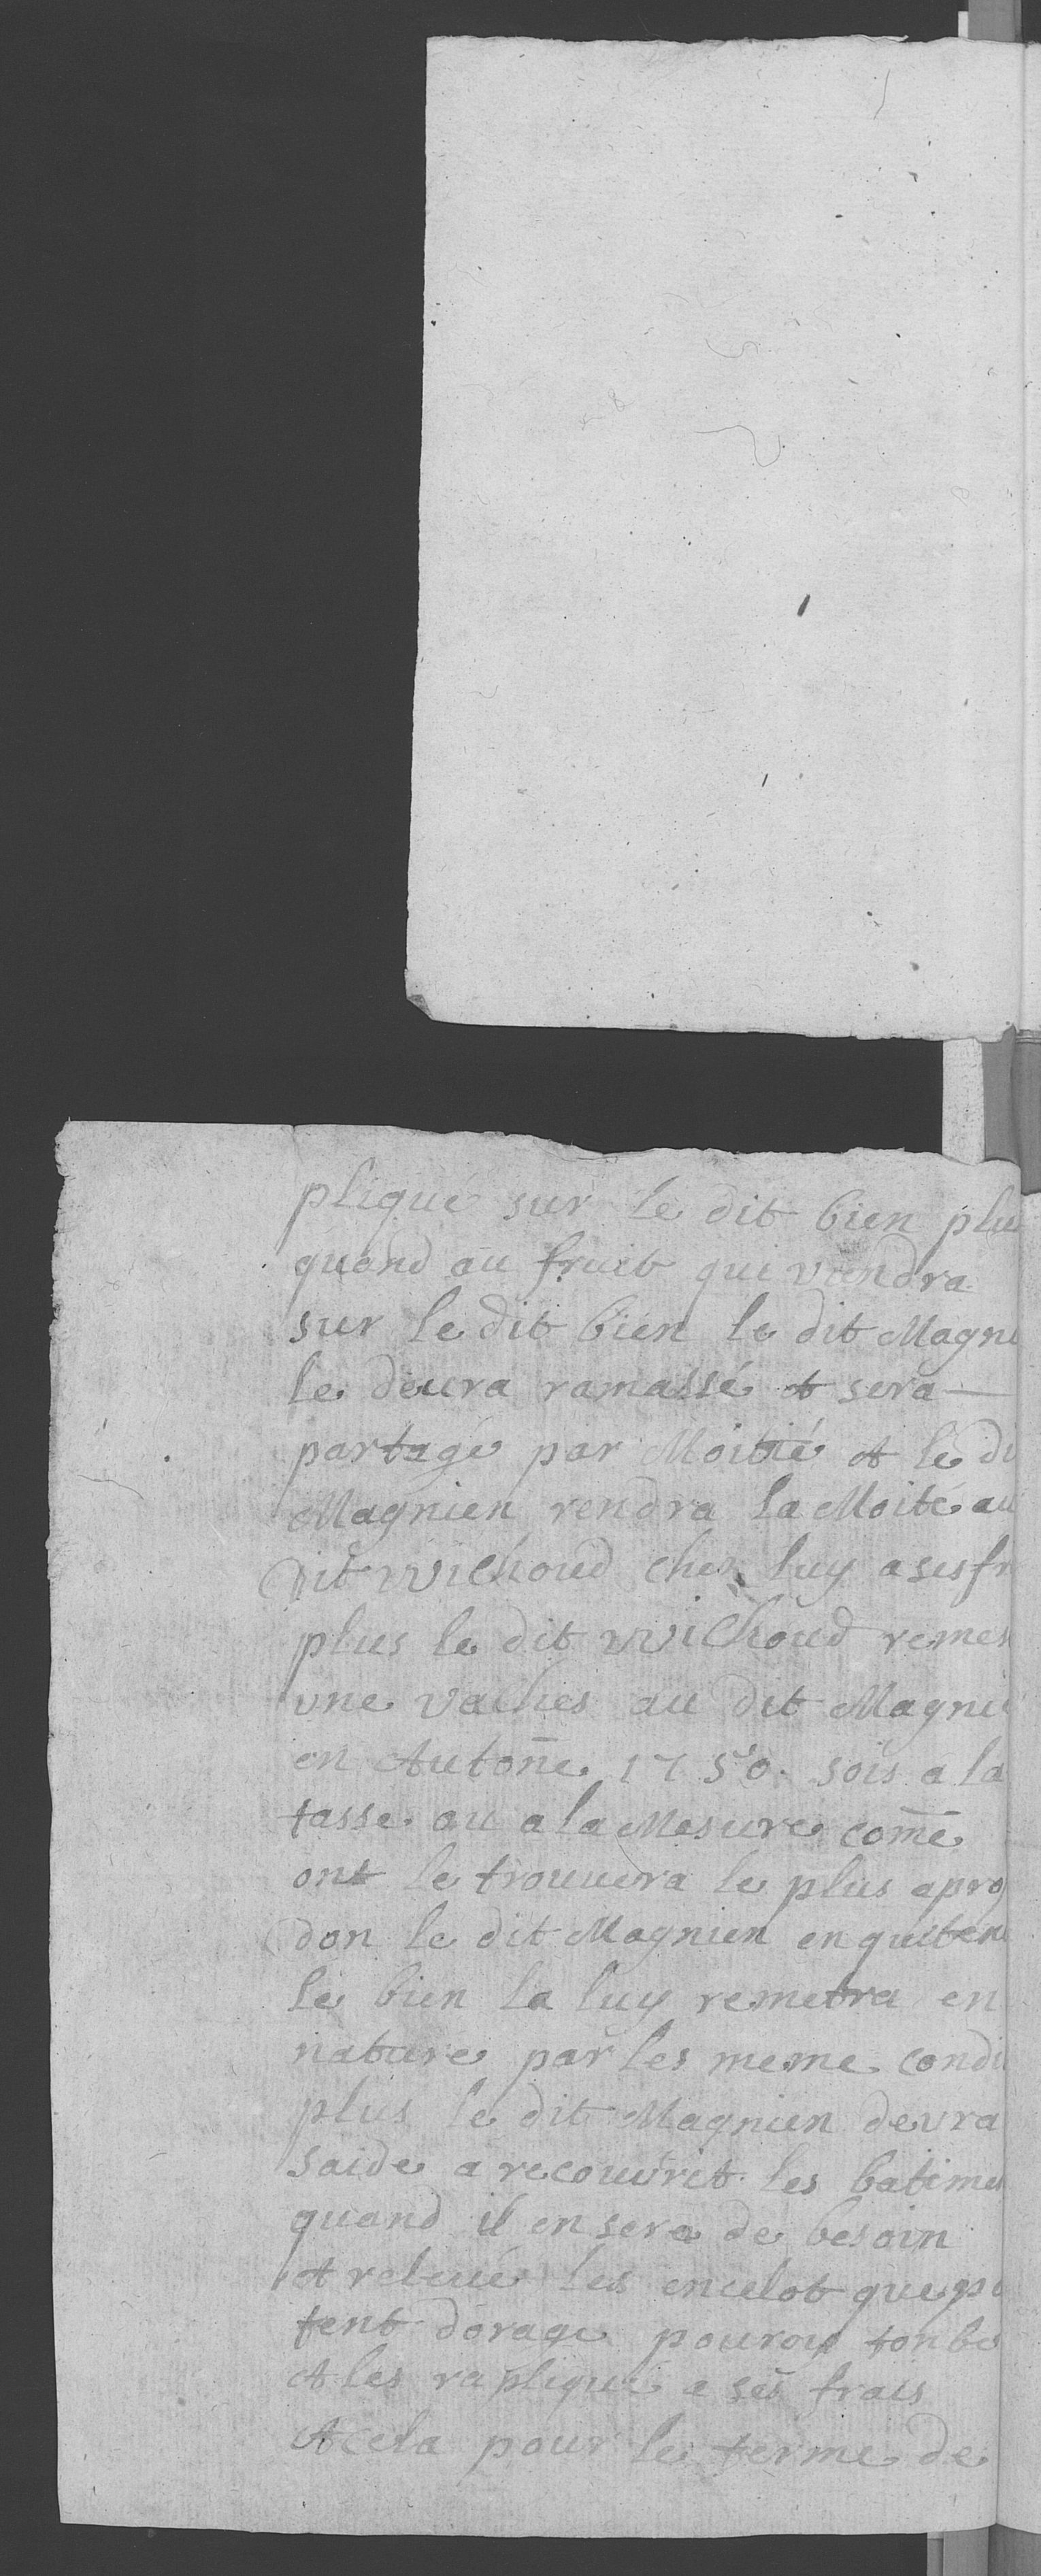 pliqué sur le dit bien plu
quand au fruit qui viendra
sur le dit bien le dit Magni
le deura ramassé et sera —
partagé par Moitié et le di
Magnien rendra la Moité au
dit wichoud ches luy a ses fr
plus le dit wichoud remet
une vaches au dit Magni
en Autoñe 1750. sois a la
tasse ou a la Mesure com̄e
ont le trouuera le plus apro
don le dit Magnien en quiten
le bien la luy remetra en
nature par les meme condi
plus le dit Magnien devra
saide a recouvrit les batimen
quand il en sera de besoin
et releué les encelot que p
tent dorage pouroy tonbe
et les rapliqué a ses frais
et cela pour le terme de